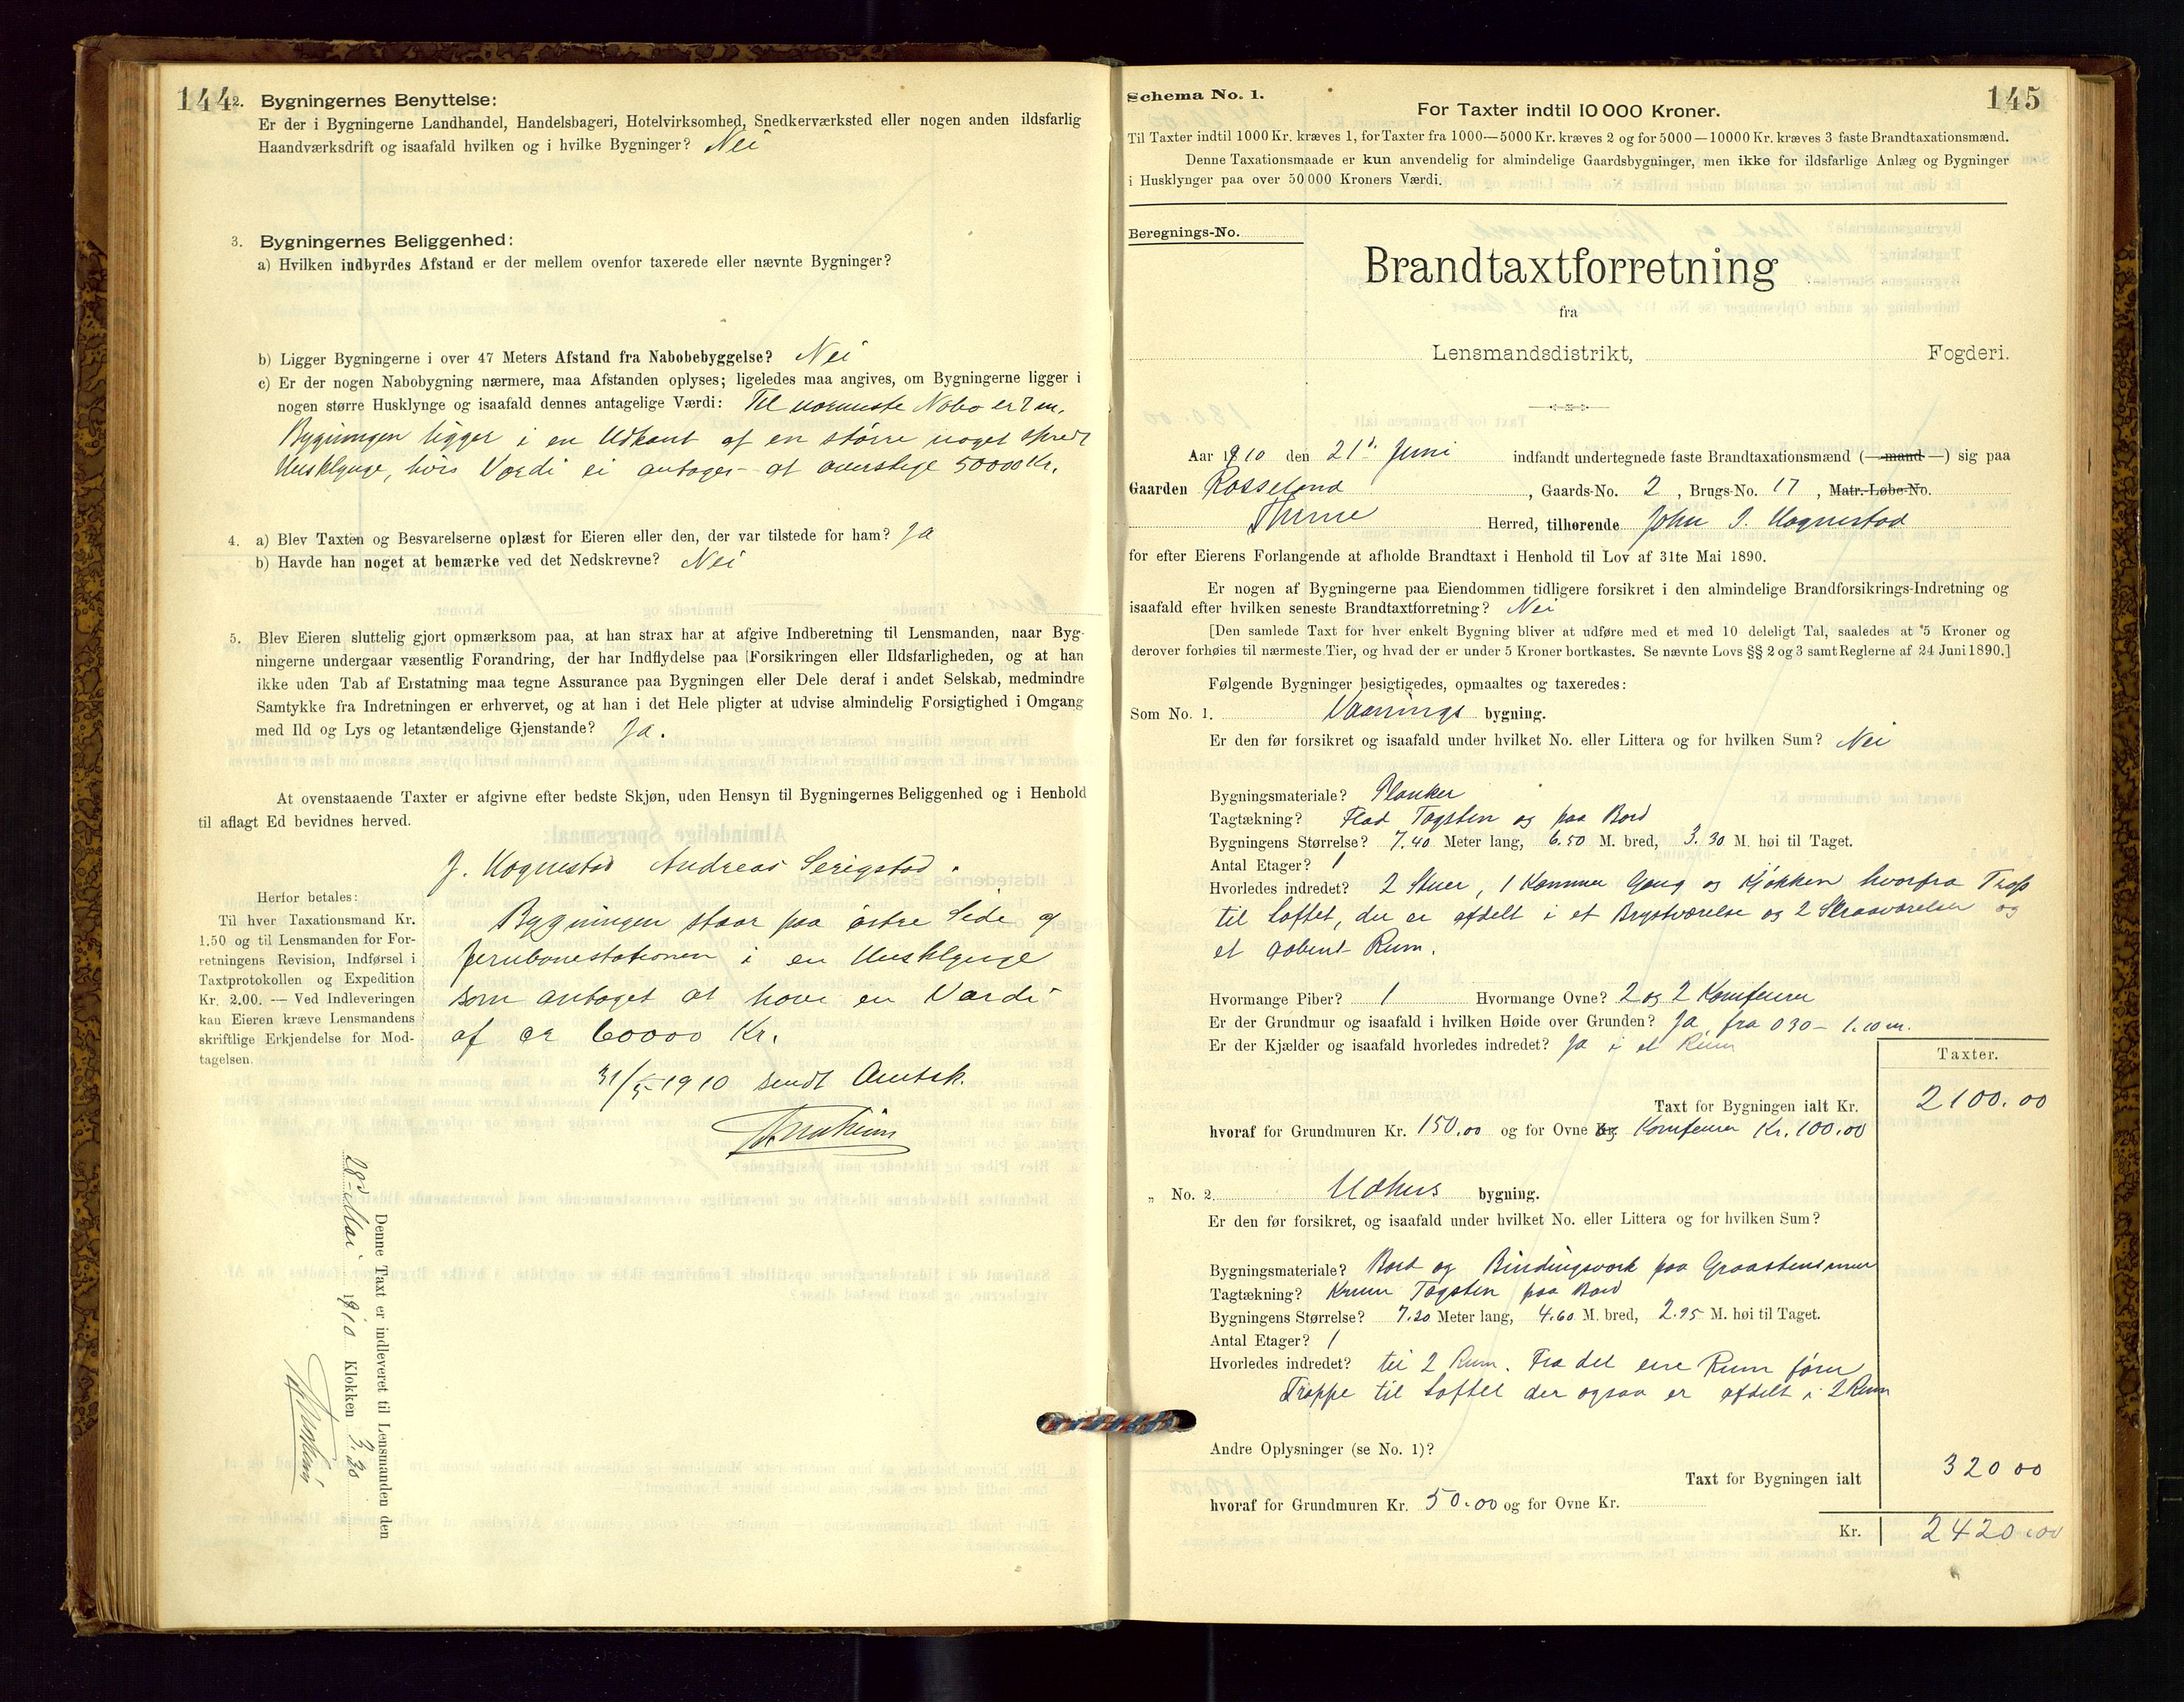 144
2. Bygningernes Benyttelse:
Er der i Bygningerne Landhandel, Handelsbageri, Hotelvirksomhed, Snedkerværksted eller nogen anden ildsfarlig
Haandværksdrift og isaafald hvilken og i hvilke Bygninger? Nei
3. Bygningernes Beliggenhed:
a) Hvilken indbyrdes Afstand er der mellem ovenfor taxerede eller nævnte Bygninger?
b) Ligger Bygningerne i over 47 Meters Afstand fra Nabobebyggelse? Nei
c) Er der nogen Nabobygning nærmere, maa Afstanden oplyses; ligeledes maa angives, om Bygningerne ligger i
nogen større Husklynge og isaafald dennes antagelige Værdi: Til nærmeste Nabo er 7 m.
Bygningen ligger i en Udkant af en større noget spredt
Husklynge, hvis Værdi ei antages at overstige 50000 Kr.
4. a) Blev Taxten og Besvarelserne oplæst for Eieren eller den, der var tilstede for ham? Ja
b) Havde han noget at bemærke ved det Nedskrevne? Nei
5. Blev Eieren sluttelig gjort opmærksom paa, at han strax har at afgive Indberetning til Lensmanden, naar Byg-
ningerne undergaar væsentlig Forandring, der har Indflydelse paa Forsikringen eller Ildsfarligheden, og at han
ikke uden Tab af Erstatning maa tegne Assurance paa Bygningen eller Dele deraf i andet Selskab, medmindre
Samtykke fra Indretningen er erhvervet, og at han i det Hele pligter at udvise almindelig Forsigtighed i Omgang
med Ild og Lys og letantændelige Gjenstande? Ja.
At ovenstaaende Taxter er afgivne efter bedste Skjøn, uden Hensyn til Bygningernes Beliggenhed og i Henhold
til aflagt Ed bevidnes herved.
J. Hognestad Andreas Serigstad.
Herfor betales:
Til hver Taxationsmand Kr.
1.50 og til Lensmanden for For-
retningens Revision, Indførsel i
Taxtprotokollen og Expedition
Kr. 2.00. — Ved Indleveringen
kan Eieren kræve Lensmandens
skriftlige Erkjendelse for Mod-
tagelsen.
Bygningen staar paa østre Side af
Jernbanestationen i en Husklynge
som antaget at have en Værdi
af ca 60000 Kr.
31/5 1910 sendt Amtsk.
Denne Taxt er indleveret til Lensmanden den
28de Mai 1910 Klokken 3.30
Schema No. 1.
145
For Taxter indtil 10 000 Kroner.
Til Taxter indtil 1000 Kr. kræves 1, for Taxter fra 1000—5000 Kr. kræves 2 og for 5000—10000 Kr. kræves 3 faste Brandtaxationsmænd.
Denne Taxationsmaade er kun anvendelig for almindelige Gaardsbygninger, men ikke for ildsfarlige Anlæg og Bygninger
i Husklynger paa over 50 000 Kroners Værdi.
Beregnings-No.
Brandtaxtforretning
fra
Lensmandsdistrikt, Fogderi.
Aar 1910 den 21d. Juni indfandt undertegnede faste Brandtaxationsmænd (—mand—) sig paa
Gaarden Rosseland, Gaards-No. 2, Brugs-No. 17, Matr.-Løbe-No.
Thime Herred, tilhørende John J. Hognestad
for efter Eierens Forlangende at afholde Brandtaxt i Henhold til Lov af 31te Mai 1890.
Er nogen af Bygningerne paa Eiendommen tidligere forsikret i den almindelige Brandforsikrings-Indretning og
isaafald efter hvilken seneste Brandtaxtforretning? Nei
[Den samlede Taxt for hver enkelt Bygning bliver at udføre med et med 10 deleligt Tal, saaledes at 5 Kroner og
derover forhøies til nærmeste Tier, og hvad der er under 5 Kroner bortkastes. Se nævnte Lovs §§ 2 og 3 samt Reglerne af 24 Juni 1890.]
Følgende Bygninger besigtigedes, opmaaltes og taxeredes:
Som No. 1. Vaanings bygning.
Er den før forsikret og isaafald under hvilket No. eller Littera og for hvilken Sum? Nei
Bygningsmateriale? Planker
Tagtækning? Flad Tagsten og paa Bord
Bygningens Størrelse? 7.40 Meter lang, 6.50 M. bred, 3.30 M. høi til Taget.
Antal Etager? 1
Hvorledes indredet? 2 Stuer, 1 Kammer Gang og Kjøkken hvorfra Trap
til Loftet, der er afdelt i et Brystværelse og 2 Skraaværelser og
et aabent Rum.
Hvormange Piber? 1 Hvormange Ovne? 2 og 2 Komfeurer
Er der Grundmur og isaafald i hvilken Høide over Grunden? Ja, fra 0 30 – 1.10 m.
Er der Kjælder og isaafald hvorledes indredet? Ja i et Rum
Taxter.
Taxt for Bygningen ialt Kr. 2100.00
hvoraf for Grundmuren Kr. 150.00 og for Ovne og Komfeurer Kr. 100.00
„ No. 2 Udhus bygning.
Er den før forsikret, og isaafald under hvilket No. eller Littera og for hvilken Sum?
Bygningsmateriale? Bord og Bindingsværk paa Graastensmur
Tagtækning? Krum Tagsten paa Bord
Bygningens Størrelse? 7.20 Meter lang, 4.60 M. bred, 2.95 M. høi til Taget.
Antal Etager? 1
Hvorledes indredet? til 2 Rum. Fra det ene Rum fører
Trappe til Loftet der ogsaa er afdelt i 2 Rum
Andre Oplysninger (se No. 1)?
Taxt for Bygningen ialt 320 00
hvoraf for Grundmuren Kr. 50.00 og for Ovne Kr.
Kr. 2420.00